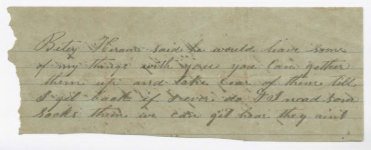 Betsy Hiram said he would leave some
of my things with you you can gether
them up and take care of them till
I git back if I ever do I had
socks them we can git hear they aint